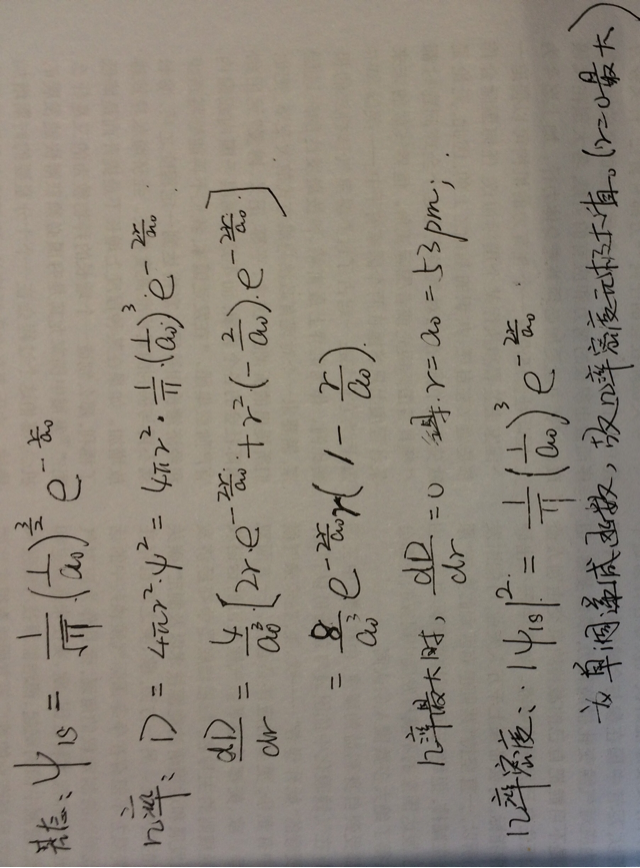 基态: ψ₁s = 1/√π · (1/a₀)^(3/2) e^(-r/a₀)
几率: D = 4πr²·ψ² = 4πr²·1/π·(1/a₀)³ e^(-2r/a₀).
dD/dr = 4/a₀³ [2r·e^(-2r/a₀) + r²·(-2/a₀)·e^(-2r/a₀)]
= 8/a₀³ e^(-2r/a₀) r(1 - r/a₀).
几率最大时, dD/dr = 0 得. r = a₀ = 53 pm;
几率密度: |ψ₁s|² = 1/π (1/a₀)³ e^(-2r/a₀).
为单调递减函数, 故几率密度无极大值。(r=0最大)